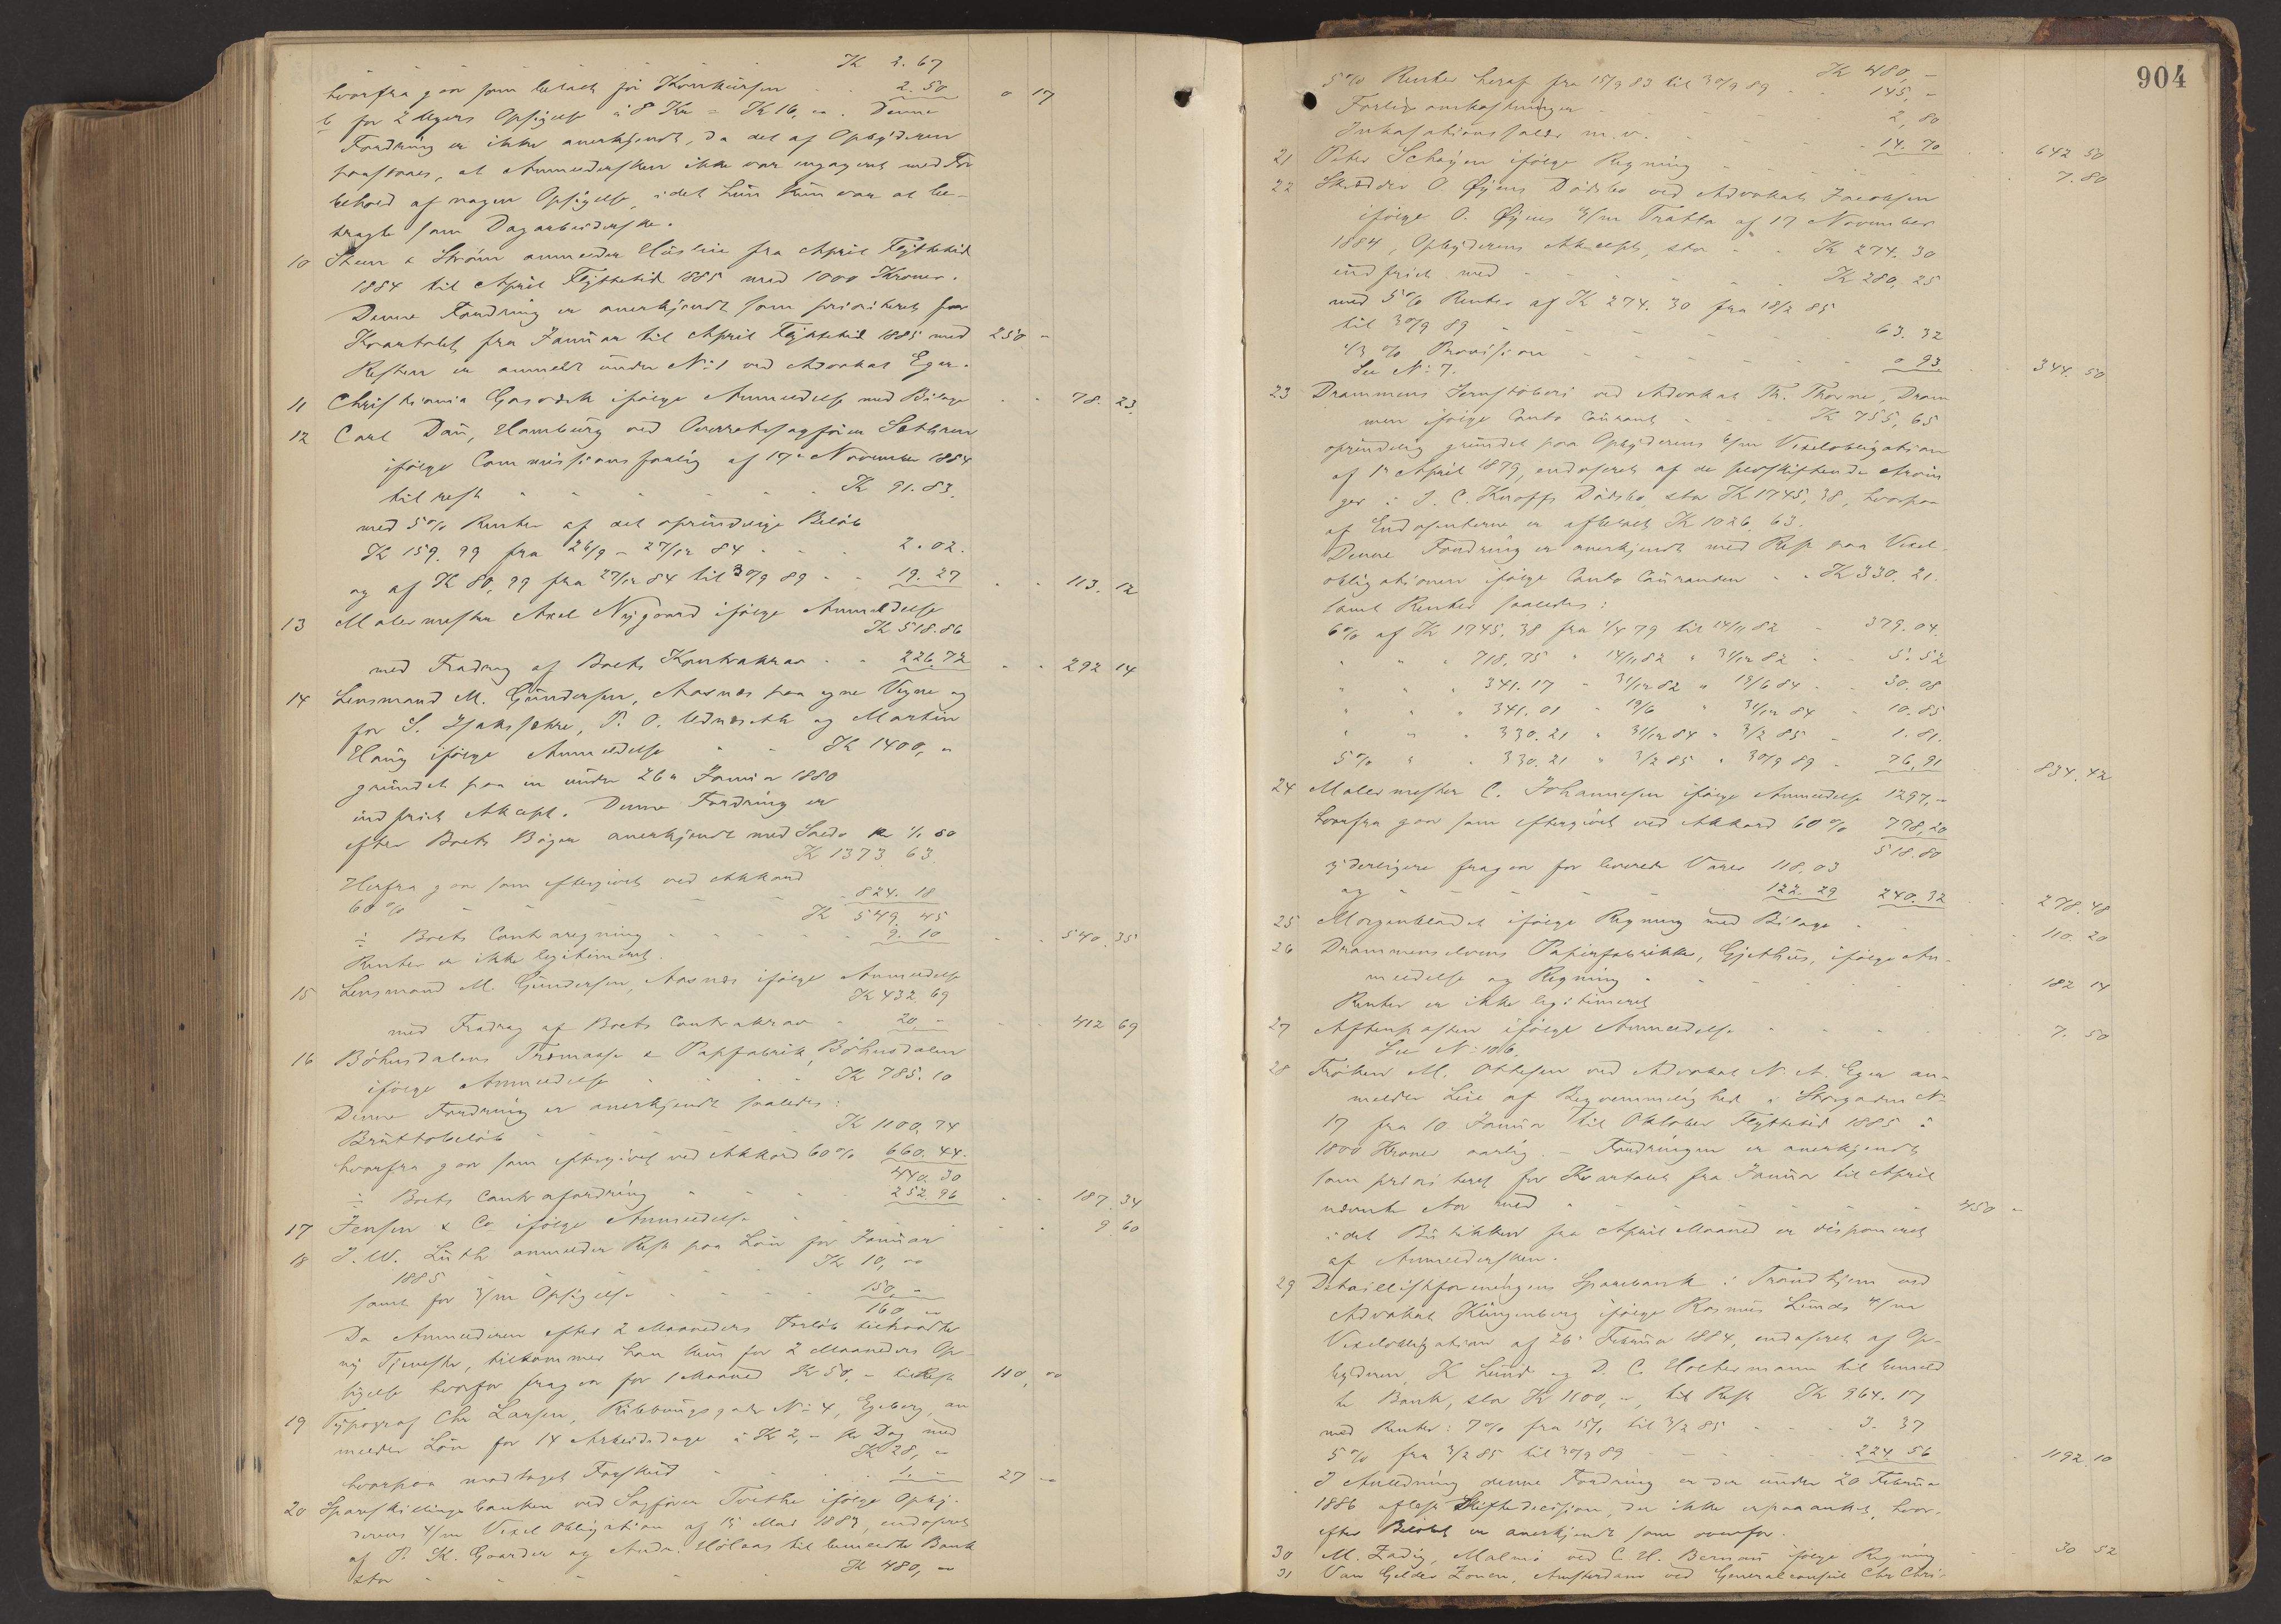 Kr 2. 67
hvorfra gaar som betalt før Konkursen 2. 50 0 17
b for 2 Ugers Opsigelse à 8 Kr = Kr 16, 00. Denne
Fordring er ikke anerkjendt, da det af Opbyderen
paastaaes, at Anmeldersken ikke var engageret med For
behold af nogen Opsigelse, idet hun kun var at be-
tragte som Dagarbeiderske.
10 Steen & Strøm anmelder Husleie fra April Flyttetid
1884 til April Flyttetid 1885 med 1000 Kroner.
Denne Fordring er anerkjendt som prioriteret for
Kvartalet fra Januar til April Flyttetid 1885 med 250 -
Resten er anmeldt under No 1 ved Advokat Eger.
11 Christiania Gasværk ifølge Anmeldelse med Bilage 78. 23
12 Carl Dau, Hamburg ved Overretssagfører Sethren
ifølge Commissionsforlig af 17de November 1884
til rest Kr 91. 83.
med 5% Renter af det oprindelige Beløb
Kr 159. 99 fra 26/9 - 27/12 84 2. 02.
og af Kr 80, 99 fra 27/12 84 til 30/9 89 19. 27 113. 12
13 Malermester Axel Nygaard ifølge Anmeldelse
Kr 518. 86
med Fradrag af Boets Kontrakrav 226. 72 292 14
14 Lensmand M. Gundersen, Aasnæs paa egne Vegne og
for S. Isaksætre, P. O. Udnæseth og Martin
Haug ifølge Anmeldelse Kr 1400, -
grundet paa en under 26de Januar 1880
indfriet Akcept. Denne Fordring er
efter Boets Bøger anerkjendt med Saldo
Kr 1373. 63.
Herfra gaar som eftergivet ved Akkord
60% 824. 18
Kr 549. 45
÷ Boets Contraregning 9. 10 540. 35
Renter er ikke legitimeret.
15 Lensmand M. Gundersen, Aasnæs ifølge Anmeldelse
Kr 432. 69
med Fradrag af Boets Contrakrav 20, - 412 69
16 Böhusdalens Træmasse & Papfabrik, Böhusdalen
ifølge Anmeldelse Kr 785. 10
Denne Fordring er anerkjendt saaledes:
Bruttobeløb Kr 1100. 74
hvorfra gaar som eftergivet ved Akkord 60% 660. 44.
440. 30
÷ Boets Contrafordring 252. 96 187. 34
17 Jensen & Co ifølge Anmeldelse 9. 60
18 J. W. Luth anmelder Rest paa Løn for Januar
1885 Kr 10, 00
samt for 3/m Opsigelse 150, -
160, -
Da Anmelderen efter 2 Maaneders Forløb tiltraadte
ny Tjeneste, tilkommer ham kun for 2 Maaneders Op-
sigelse hvorfor fragaar for 1 Maaned Kr 50, - til Rest 110, 00
19 Typograf Chr Larsen, Ribbungsgade No 4, Egeberg, an
melder Løn for 14 Arbeidsdage à Kr 2, - pr Dag med
Kr 28, -
hvorpaa modtaget Forskud 1, - 27 -
20 Spareskillingsbanken ved Sagfører Tvethe ifølge Opby-
derens 4/m Vexel Obligation af 15 Mai 1883, endosseret
af P. K. Gaarder og Andr. Hölaas til bemeldte Bank
stor Kr 480, -
904
Kr 480, -
5% Renter heraf fra 15/9 83 til 30/9 89 145, -
Forligsomkostninger 2, 80
Inkasationssalær m. v. 14. 70 642 50
21 Peter Schøyen ifølge Regning 7. 80
22 Skrædder O. Øyens Dødsbo ved Advokat Jacobsen
ifølge O. Øyens 3/m Tratta af 17 November
1884, Opbyderens Akcept, stor Kr 274. 30
indfriet med Kr 280, 25
med 5% Renter af Kr 274. 30 fra 18/2 85
til 30/9 89 63. 32
1/3 % Provision 0 93
See No 7. 344. 50
23 Drammens Jernstøberi ved Advokat Th. Thorne, Dram
men ifølge Conto Courant Kr 755, 65
oprindelig grundet paa Opbyderens 6/m Vexelobligation
af 1ste April 1879, endosseret af de selvskiftende Arvin
ger i J. C. Kroffs Dødsbo, stor Kr 1745. 38, hvorpaa
af Endosenterne er afbetalt Kr 1026. 63.
Denne Fordring er anerkjendt med Rest paa Vexel-
obligationen ifølge Conto Couranten Kr 330. 21.
samt Renter saaledes:
6% af Kr 1745. 38 fra 1/4 79 til 14/11 82 379. 04.
" " " 718. 75 " 14/11 82 " 31/12 82 5. 52
" " " 341. 17 " 31/12 82 " 19/6 84 30. 08
" " " 341. 01 " 19/6 " 31/12 84 10. 85
" " " 330. 21 " 31/12 84 " 3/2 85 1. 81.
5% " " 330. 21 " 3/2 85 " 30/9 89 76, 91 834. 42
24 Malermester C. Johannesen ifølge Anmeldelse 1297, -
hvorfra gaar som eftergivet ved Akkord 60% 778, 20
518. 80
yderligere fragaar for leverede Varer 118. 03
og " 122. 29 240. 32 278. 48
25 Morgenbladet ifølge Regning med Bilage 110. 20
26 Drammenselvens Papirfabrikker, Gjethus, ifølge An-
meldelse og Regning 182 14
Renter er ikke legitimeret
27 Aftenposten ifølge Anmeldelse 7. 50
See No 106.
28 Frøken M. Ottesen ved Advokat N. A. Eger an-
melder Leie af Beqvemmelighed i Storgaden No
17 fra 10 Januar til Oktober Flyttetid 1885 à
1800 Kroner aarlig. - Fordringen er anerkjendt
som prioriteret for Kvartalet fra Januar til April
nævnte Aar med 450 -
idet Butikken fra April Maaned er disponeret
af Anmeldersken.
29 Detaillistforeningens Sparebank i Trondhjem ved
Advokat Klingenberg ifølge Rasmus Lunds 4/m
Vexelobligation af 26de Februar 1884, endosseret af Op-
byderen, K Lund og D. C. Holtermann til bemeld
te Bank, stor Kr 1100, -, til Rest Kr 964. 17
med Renter: 7% fra 15/1 til 3/2 85 3. 37
5% fra 3/2 85 til 30/9 89 224. 56 1192. 10
I Anledning denne Fordring er der under 20 Februar
1886 aflagt Skiftedecision, der ikke er paaanket, hvor-
efter Beløbet er anerkjendt som ovenfor.
30 M. Zadig, Malmö ved C. H. Bernau ifølge Regning 30 52
31 Van Gelder Zonen, Amsterdam ved Generalconsul Chr Chri-